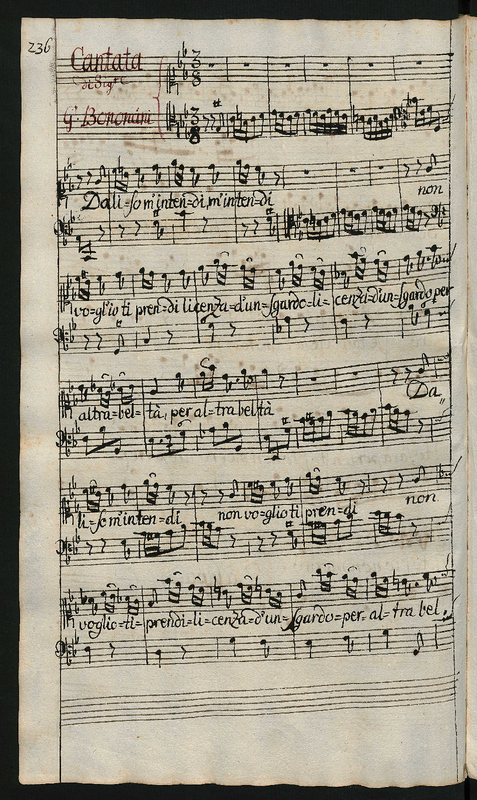 236
Cantata
del Sigre
G. Bononcini
Dali=so m'inten=di, m'inten=di non
vo=glio ti pren=di licenza=d'un=sgardo=li=cenza=d'un=sgardo per
altra=bel=tà, per al=tra beltà Da
li=so m'inten=di non vo=glio ti pren=di non
voglio=ti=prendi=li=cenza=d'un=sgardo=per al=tra bel